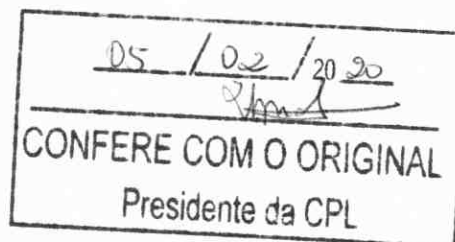 05 / 02 / 2020
CONFERE COM O ORIGINAL
Presidente da CPL